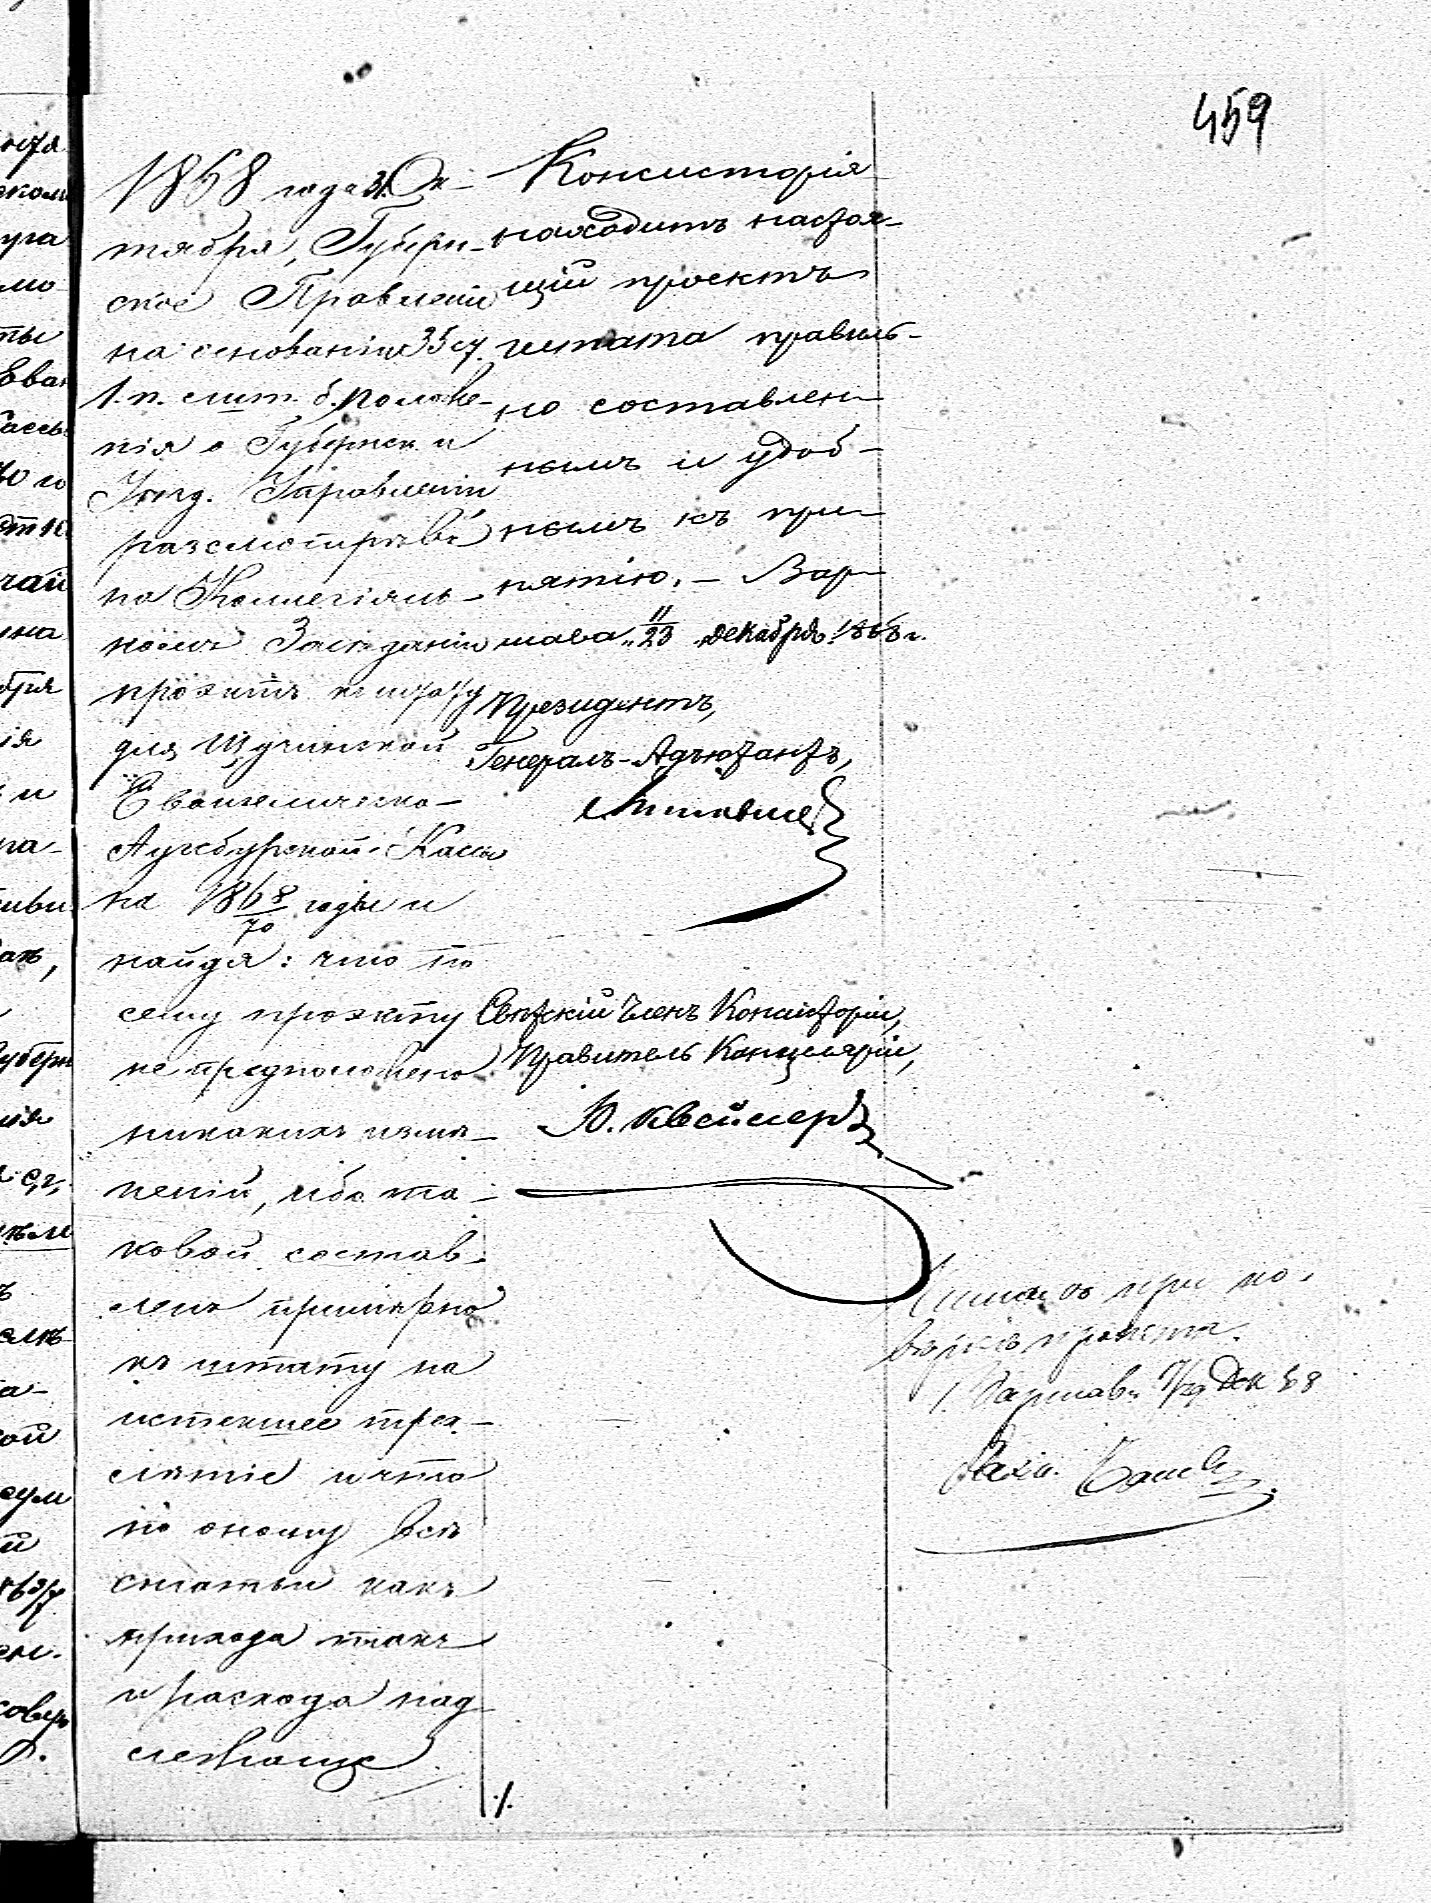 459
1868 года 31 Ок-
тября, Губерн-
ское Правленіе
на основаніи 35 ст.
1. п. лит. б. положе-
нія о Губернск. и
Уѣзд. Управленіи
разсмотрѣвъ
на Коллегіаль-
номъ Засѣданіи
проэктъ къ штату
для Щучинской
Евангелическо-
Аугсбургской Кассы
на 1868/70 годы и
найдя: что по
сему проэкту
не предположено
никакихъ измѣ-
неній, ибо та-
ковой состав-
ленъ примѣрно
къ штату на
истекшее трех-
лѣтіе и что
по оному всѣ
статьи какъ
прихода такъ
и расхода над-
лежаще
Консисторія
находитъ настоя-
щій проектъ
штата правиль-
но составлен-
нымъ и удоб-
нымъ къ при-
нятію. – Вар-
шава, 11/23 декабря 1868 г.
Президентъ,
Генералъ-Адъютантъ,
Свѣтскій Членъ Консисторіи,
Правитель Канцеляріи,
при по-
вѣркѣ проекта.
Варшава Дек 68
./.